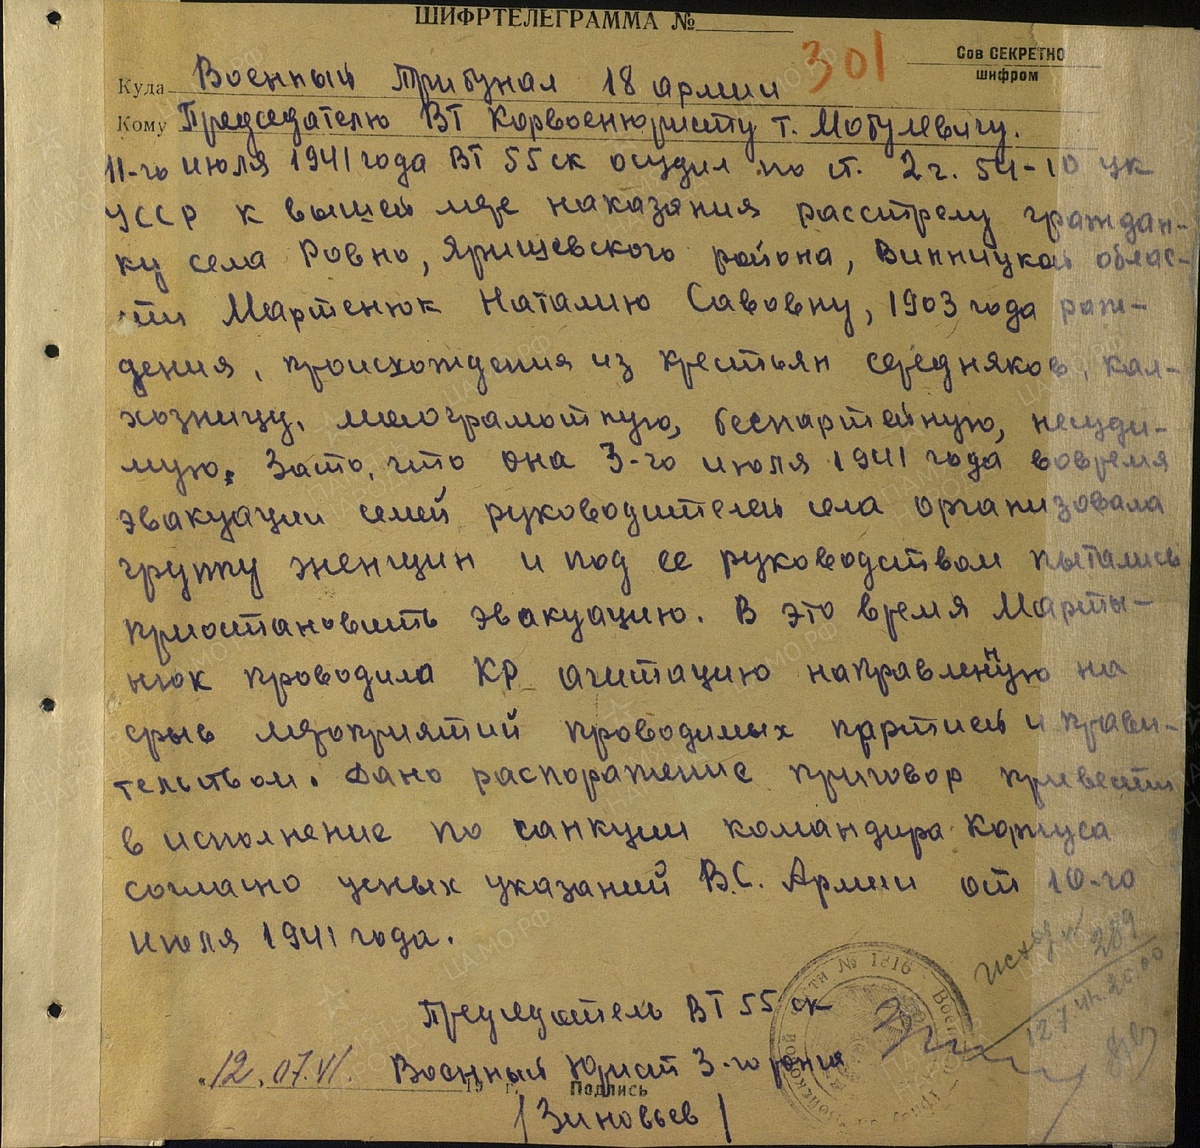 ШИФРТЕЛЕГРАММА №
301
Сов СЕКРЕТНО
шифром
Куда Военный Трибунал 18 армии
Кому Председателю ВТ Корвоенюристу т. Мотулевичу.
11-го июля 1941 года ВТ 55 ск осудил по ст. 2 ч. 54-10 ук
УССР к вышей мере наказания расстрелу граждан-
ку села Ровно, Яришевского района, Винницкой облас-
ти Мартенюк Наталию Савовну, 1903 года рож-
дения, происхождения из крестьян середняков, кал-
хозницу, малограмотную, беспартейную, несуди-
мую. Зато, что она 3-го июля 1941 года вовремя
эвакуации семей руководителей села организовала
группу женщин и под ее руководством пытались
приостановить эвакуацию. В это время Марты-
нюк проводила КР агитацию направленую на
срыв мероприятий проводимых партией и прави-
тельством. Дано распоражение приговор привести
в исполнение по санкции командира Корпуса
согласно усных указаний В.С. Армии от 10-го
июля 1941 года.
Исход № 289
12.7.41. 20.00
Председатель ВТ 55 ск
12.07.VI. Военный Юрист 3-го ранга
19 г. Подпись
/Зиновьев/
№ 1816